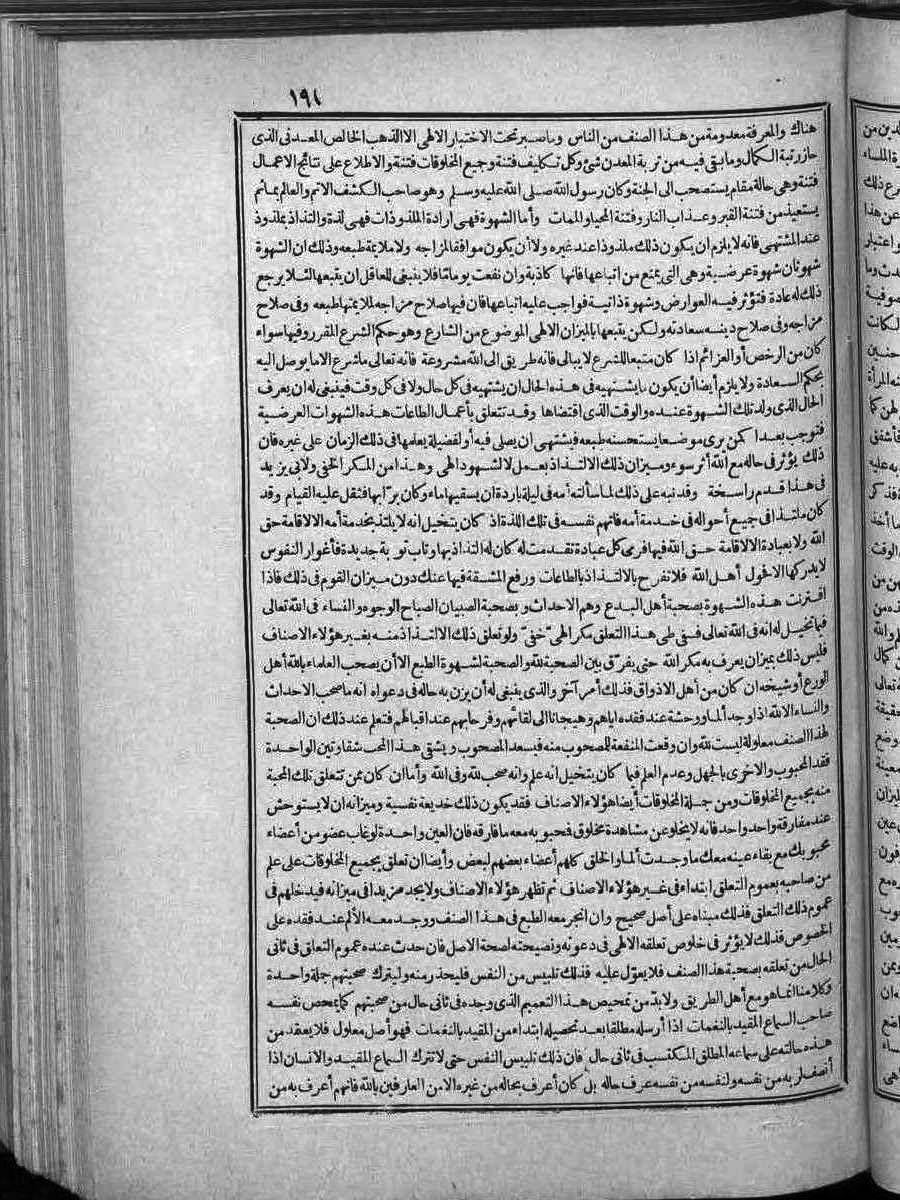 ١٩١
هناك والمعرفة معدومة من هذا الصنف من الناس وما صبر تحت الاختبار الالهى الا الذهب الخالص المعدنى الذى
حاز رتبة الكمال وما بقى فيه من تربة المعدن شئ وكل تكليف فتنة وجميع المخلوقات فتنة والاطلاع على نتائج الاعمال
فتنة وهى حالة مقام يستصحب الى الجنة وكان رسول الله صلى الله عليه وسلم وهو صاحب الكشف الاتم والعالم بما ثم
يستعيذ من فتنة القبر وعذاب النار وفتنة المحيا والممات وأما الشهوة فهى ارادة الملذوذات فهى لذة والتذاذ بملذوذ
عند المشتهى فانه لا يلزم ان يكون ذلك ملذوذا عند غيره ولا أن يكون موافقا لمزاجه ولا ملايمة طبعه وذلك ان الشهوة
شهوتان شهوة عرضية وهى التى يمنع من اتباعها فانها كاذبة وان نفعت يوما تا فلا ينبغى للعاقل ان يتبعها لئلا يرجع
ذلك له عادة فتؤثر فيه العوارض وشهوة ذاتية فواجب عليه اتباعها فان فيها صلاح مزاجه لملايمتها طبعه وفى صلاح
مزاجه وفى صلاح دينه سعادته ولكن يتبعها بالميزان الالهى الموضوع من الشارع وهو حكم الشرع المقرر وفيها سواء
كان من الرخص أو العزائم اذا كان متبعا للشرع لا يبالى فانه طريق الى الله مشروعة فانه تعالى ما شرع الا ما يوصل اليه
بحكم السعادة ولا يلزم أيضا أن يكون ما يشتهيه فى هذه الحال ان يشتهيه فى كل حال ولا فى كل وقت فينبغى له ان يعرف
الحال الذى ولد تلك الشهوة عنده والوقت الذى اقتضاها وقد تتعلق بأعمال الطاعات هذه الشهوات العرضية
فتوجب بعدا كمن يرى موضعا يستحسنه طبعه فيشتهى ان يصلى فيه أو لفضيلة يعلمها فى ذلك الزمان على غيره فان
ذلك يؤثر فى حاله مع الله أثر سوء وميزان ذلك الالتذاذ بعمل لا لشهود الهى وهذا من المكر الخفى ولابى يزيد
فى هذا قدم راسخة وقد نبه على ذلك لما سألته أمه فى ليلة باردة ان يسقيها ماء وكان برّا بها فثقل عليه القيام وقد
كان ملتذا فى جميع أحواله فى خدمة أمه فاتهم نفسه فى تلك اللذة اذ كان يتخيل انه لا يلتذ بخدمة أمه الا لاقامة حق
الله ولا بعبادة الا لاقامة حق الله فيها فرمى كل عبادة تقدمت له كان له التذاذ بها وتاب توبة جديدة فأغوار النفوس
لا يدركها الا فحول أهل الله فلا تفرح بالالتذاذ بالطاعات ورفع المشقة فيها عنك دون ميزان القوم فى ذلك فاذا
اقترنت هذه الشهوة بصحبة أهل البدع وهم الاحداث وبصحبة الصبيان الصباح الوجوه والنساء فى الله تعالى
فيما تخيل له انه فى الله تعالى ففى طى هذا التعلق مكر الهىّ خفىّ ولو تعلق ذلك الالتذاذ منه بغير هؤلاء الاصناف
فليس ذلك بميزان يعرف به مكر الله حتى يفرّق بين الصحبة لله والصحبة لشهوة الطبع الا أن يصحب العلماء بالله أهل
الورع أو شيخه ان كان من أهل الاذواق فذلك أمر آخر والذى ينبغى له أن يزن به حاله فى دعواه انه ما صحب الاحداث
والنساء الا لله اذا وجد ألما ووحشة عند فقده اياهم وهيجانا الى لقائهم وفرحا بهم عند اقبالهم فتعلم عند ذلك ان الصحبة
لهذا الصنف معلولة ليست لله وان وقعت المنفعة للمصحوب منه فيسعد المصحوب ويشقى هذا المحب شقاوتين الواحدة
فقد المحبوب والاخرى بالجهل وعدم العلم فيما كان يتخيل انه علم وانه صحب لله وفى الله وأما ان كان ممن تتعلق تلك المحبة
منه بجميع المخلوقات ومن جملة المخلوقات أيضا هؤلاء الاصناف فقد يكون ذلك خديعة نفسية وميزانه ان لا يستوحش
عند مفارقة واحد واحد فانه لا يخلو عن مشاهدة مخلوق فمحبوبه معه ما فارقه فان العين واحدة لو غاب عضو من أعضاء
محبوبك مع بقاء عينه معك ما وجدت ألما والخلق كلهم أعضاء بعضهم لبعض وأيضا ان تعلق بجميع المخلوقات على علم
من صاحبه بعموم التعلق ابتداء فى غير هؤلاء الاصناف ثم تظهر هؤلاء الاصناف ولا يجد مزيدا فى ميزانه فيدخلهم فى
عموم ذلك التعلق فذلك مبناه على أصل صحيح وان انجر معه الطبع فى هذا الصنف ووجد معه الألم عند فقده على
الخصوص فذلك لا يؤثر فى خلوص تعلقه الالهى فى دعوته ونصيحته لصحة الاصل فان حدث عنده عموم التعلق فى ثانى
الحال من تعلقه بصحبة هذا الصنف فلا يعوّل عليه فذلك تلبيس من النفس فليحذر منه وليترك صحبتهم جملة واحدة
وكلامنا انما هو مع أهل الطريق ولا بدّ من تمحيص هذا التعميم الذى وجده فى ثانى حال من صحبتهم كما يمحص نفسه
صاحب السماع المقيد بالنغمات اذا أرسله مطلقا بعد تحصيله ابتداء من المقيد بالنغمات فهو أصل معلول فلا يعتمد من
هذه حالته على سماعه المطلق المكتسب فى ثانى حال فان ذلك تلبيس النفس حتى لا تترك السماع المقيد والانسان اذا
أنصف لربه من نفسه ولنفسه من نفسه عرف حاله بل كان أعرف بحاله من غيره الا من العارفين بالله فانهم أعرف به من